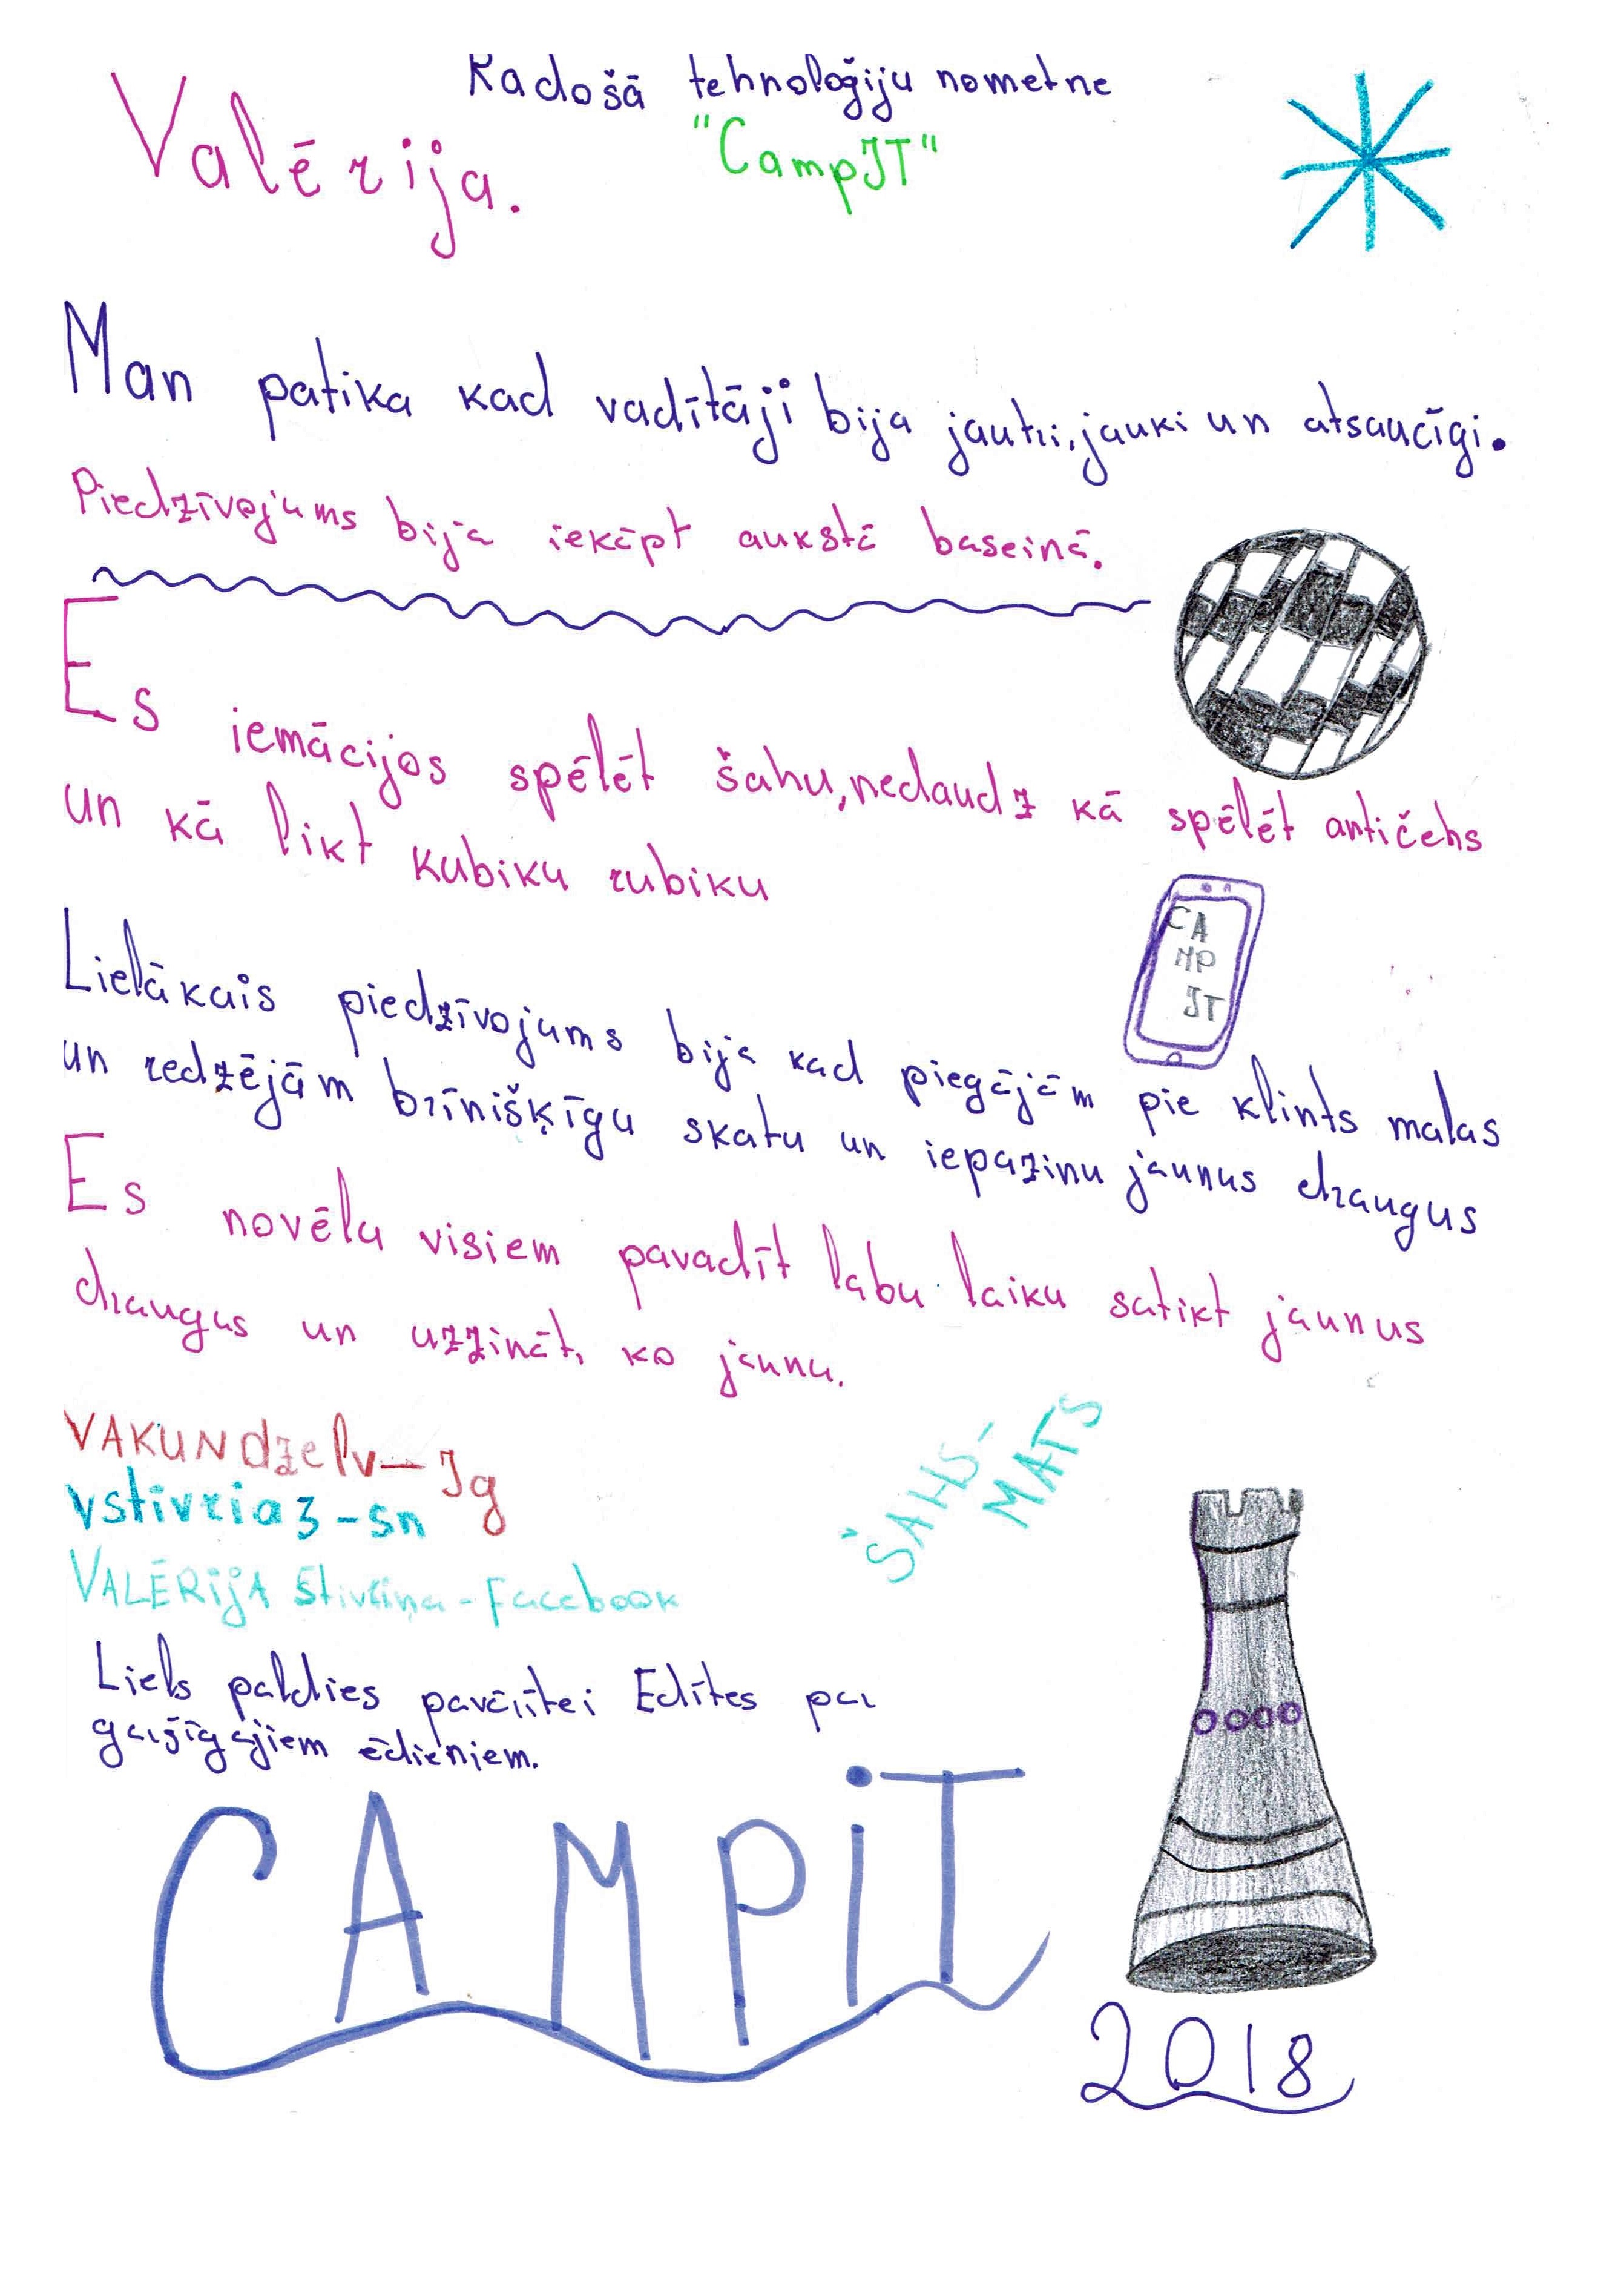 Radošā tehnoloģiju nometne
"CampIT"
Valērija.
Man patika kad vadītāji bija jautri, jauki un atsaucīgi.
Piedzīvojums bija iekāpt aukstā baseinā.
Es iemācijos spēlēt šahu, nedaudz kā spēlēt antičehs
un kā likt kubiku rubiku
CA
MP
IT
Lielākais piedzīvojums bija kad piegājām pie klints malas
un redzējām brīnišķīgu skatu un iepazinu jaunus draugus
Es novēlu visiem pavadīt labu laiku satikt jaunus
draugus un uzzināt, ko jaunu.
VAKUNdzelv-Ig
vstivria3-sn
VALĒRijA Stivriņa-Facebook
ŠAHS-
MATS
Liels paldies pavārītei Edītes par
garšīgajiem ēdieniem.
CAMPiT
2018